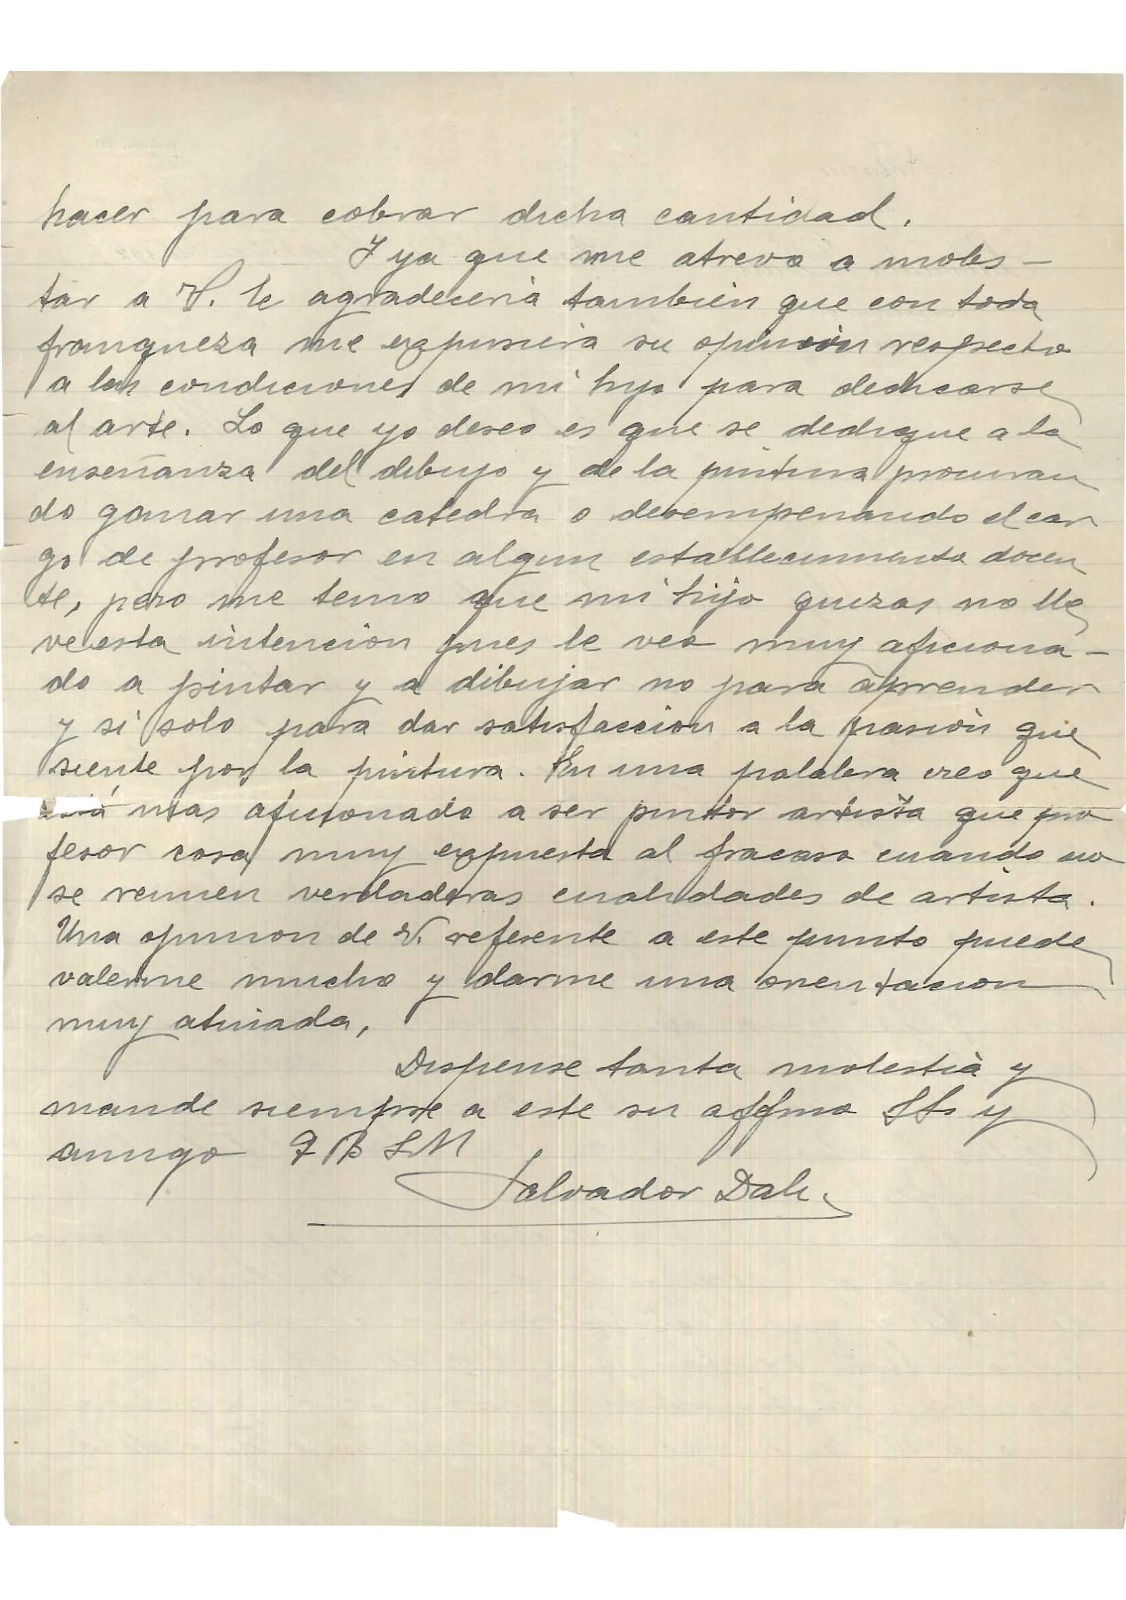 hacer para cobrar dicha cantidad.
Y ya que me atrevo a moles-
tar a V. le agradeceria tambien que con toda
franqueza me expusiera su opinión respecto
a las condiciones de mi hijo para dedicarse
al arte. Lo que yo deseo es que se dedique a la
enseñanza del dibujo y de la pintura procuran
do ganar una catedra o desempenando el car
go de profesor en algun establecimiento docen
te, pero me temo que mi hijo quizas no lle
ve esta intencion pues le veo muy aficiona-
do a pintar y a dibujar no para aprender
y si solo para dar satisfaccion a la pasión que
siente por la pintura. En una palabra creo que
mas aficionado a ser pintor artista que pro
fesor cosa muy expuesta al fracaso cuando no
se reunen verdaderas cualidades de artista.
Una opinion de V. referente a este punto puede
valerme mucho y darme una orientacion
muy atinada,
Dispense tanta molestia y
mande siempre a este su affmo SSs y
amigo Q B S M
Salvador Dali